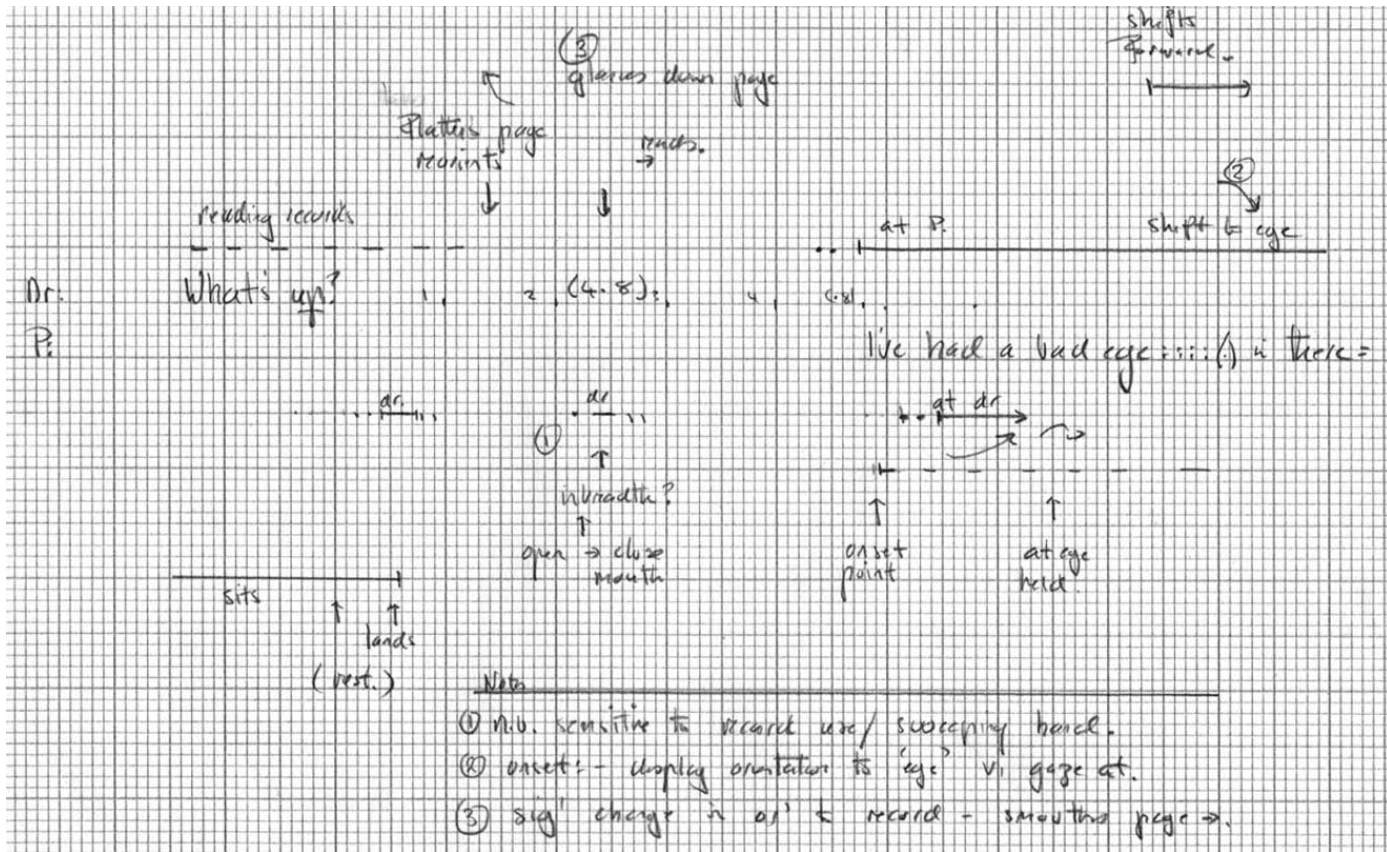 shifts
forward.
③
glances down page
flattens page
reorients
→ reads.
②
reading records
at P.
shift to eye
Dr:
What's up? 1, 2, (4.8) 3, 4, (.8), .
P:
I've had a bad eye::::(.) in there=
dr.
dr
at dr
①
inbreadth?
open → close
mouth
onset
point
at eye
held.
sits
lands
(rest.)
Notes
① n.b. sensitive to record use/ sweeping hand.
② onset:- display orientation to 'eye' v. gaze at.
③ sig' change in or' to record - smooths page →.